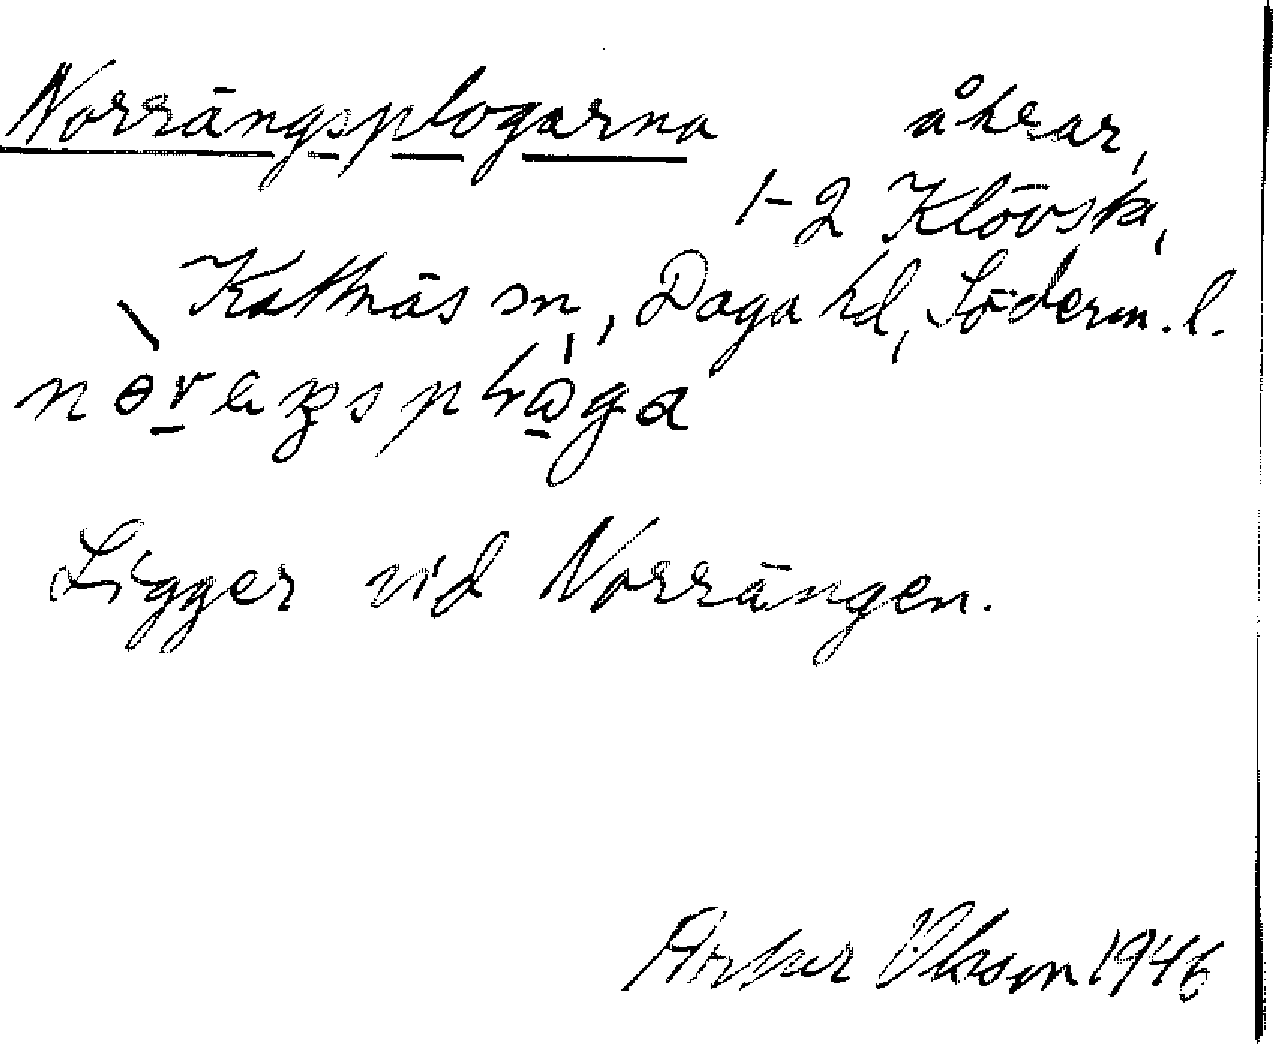 Norrängsplogarna åkrar,
1-2 Klövsta,
Kattnäs sn, Daga hd, Söderm. l.
Ligger vid Norrängen.
Artur Olsson 1946